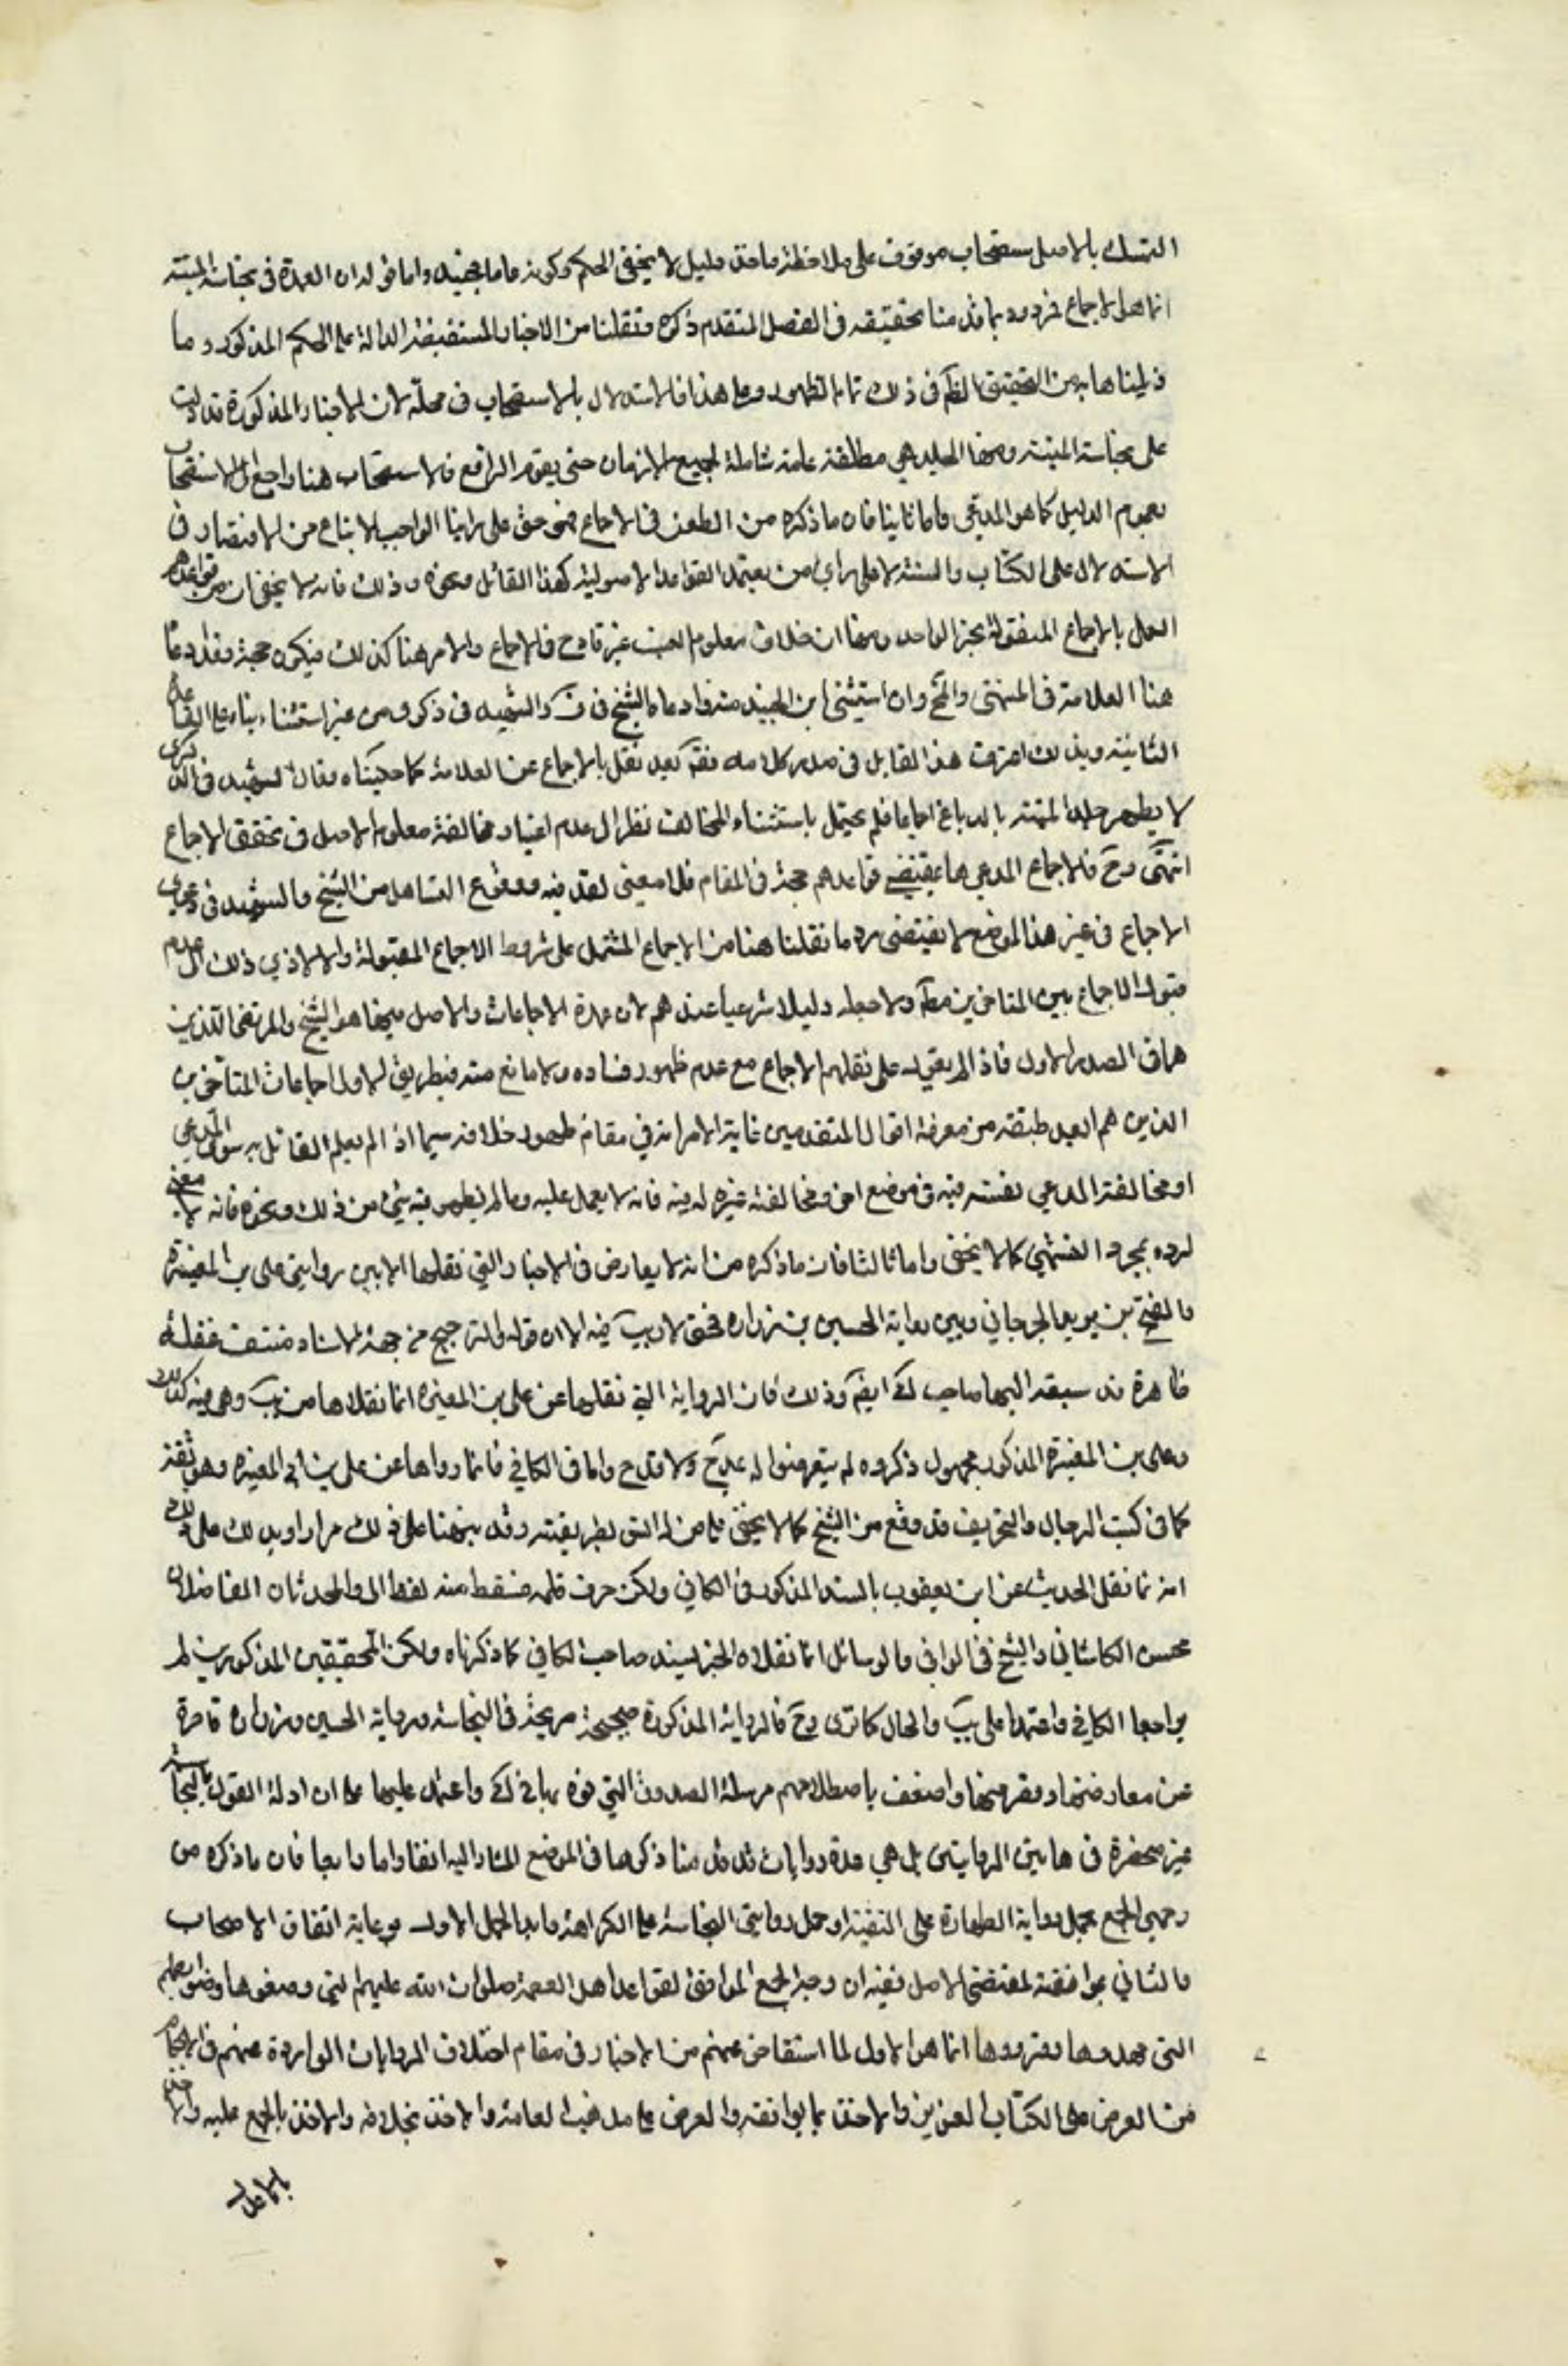 التمسك بالاستصحاب موقوف على ملاحظة ماخذ دليل لا يخفى الحكم وكونه عاما بحيث واما قوله ان العمدة في نجاسة الميتة
انما هو الاجماع فمردود بما قدمنا تحقيقه في الفصل المتقدم ذكره ونقلنا من الاخبار المستفيضة الدالة على الحكم المذكور وما
ذيلناها به من التحقيق في ذلك تمام الظهور وعلى هذا فالاستدلال بالاستصحاب في محله لان الاخبار المذكورة قد دلت
على نجاسة الميتة ومنها الجلد وهي مطلقة عامة شاملة لجميع الازمان حتى يقوم الرافع فالاستصحاب هنا راجع الى الاستصحاب
بعموم الدليل كما هو المدعى واما ثانيا فان ما ذكره من الطعن في الاجماع فهو حق على راينا الواجب الاتباع من الاقتصار في
الاستدلال على الكتاب والسنة لا على راي من يعتمد القواعد الاصولية كهذا القائل ونحوه وذلك فانه لا يخفى ان من قواعدهم
العمل بالاجماع المنقول بخبر الواحد ومنها ان خلاف معلوم النسب غير قادح في الاجماع والامر هنا كذلك فيكون حجة وقد ادعاه
هنا العلامة في المنتهى والمخ وان استثنى ابن الجنيد منه وادعاه الشيخ في ف والشهيد في ذكرى من غير استثناء بناء على القاعدة
الثانية وبذلك اعترف هذا القائل في صدر كلامه فقم بعد نقل الاجماع عن العلامة كما حكيناه وقال الشهيد في الذكرى
لا يطهر جلد الميتة بالدباغ اجماعا فلم يحتفل باستثناء المخالف نظرا الى عدم اعتبار مخالفة معلوم الاصل في تحقق الاجماع
انتهى وح فالاجماع المدعى هنا بمقتضى قواعدهم حجة في المقام فلا معنى لقدحه ووقوع التساهل من الشيخ والشهيد في دعوى
الاجماع في غير هذا الموضع لا يقتضي رد ما نقلنا هنا من الاجماع المشتمل على شروط الاجماع المقبولة والا لادى ذلك الى عدم
قبول الاجماع بين المتاخرين مطلقا ولا جعله دليلا شرعيا عندهم لان عمدة الاجماعات والاصل فيها هو الشيخ والمرتضى اللذين
هما في الصدر الاول فاذا لم يعول على نقلهم الاجماع مع عدم ظهور فساده ولا مانع منه فبطريق الاولى اجماعات المتاخرين
الذين هم ابعد طبقة من معرفة اقوال المتقدمين غاية الامر انه في مقام ظهور خلافه سيما اذا لم يعلم القائل به سوى المدعي
او مخالفة المدعي نفسه فيه في موضع اخر ومخالفة غيره له فيه فانه لا يعمل عليه وما لم يظهر فيه شيء من ذلك ونحوه فانه لا معنى
لرده بمجرد التشهي كما لا يخفى واما ثالثا فان ما ذكره من انه لا يعارض في الاخبار التي نقلها الا بين روايتي علي بن المغيرة
والفتح بن يزيد الجرجاني وبين رواية الحسين بن زرارة فحق لا ريب فيه الا ان قوله والترجيح من جهة الاسناد منتف غفلة
ظاهرة قد سبقه اليها صاحب لك ايضا وذلك فان الرواية التي نقلها عن علي بن المغيرة انما نقلاها من يب وهي فيه كذلك
وعلي بن المغيرة المذكور مجهول ذكروه لم يتعرضوا له بمدح ولا قدح واما في الكافي فانما رواها عن علي بن ابي المغيرة وهو ثقة
كما في كتب الرجال والتحريف قد وقع من الشيخ كما لا يخفى على من له انس بطريقته وقد نبهنا على ذلك مرارا ويدلك على ذلك
انه انما نقل الحديث عن ابن يعقوب بالسند المذكور في الكافي ولكن حرف قلمه فسقط منه لفظ ابي والمحدثان الفاضلان
محسن الكاشاني والشيخ في الوافي والوسائل انما نقلاه الخبر بسند صاحب الكافي كما ذكرناه ولكن المحققين المذكورين لم
يراجعا الكافي واعتمدا على يب والحال كما ترى وح فالرواية المذكورة صحيحة صريحة في النجاسة ورواية الحسين بن زرارة قاصرة
عن معارضتها واضعف باصطلاحهم مرسلة الصدوق التي نوه بها في لك واعتمد عليها على ان ادلة القول بالنجاسة
غير منحصرة في هاتين الروايتين بل هي عدة روايات قد قدمنا ذكرها في الموضع المشار اليه انفا واما رابعا فان ما ذكره من
وجهي الجمع بحمل رواية الطهارة على التقية او حمل روايتي النجاسة على الكراهة وايد الحمل الاول برعاية اتفاق الاصحاب
والثاني بموافقته لمقتضى الاصل ففيه ان وجه الجمع الموافق لقواعد اهل العصمة صلوات الله عليهم التي وضعوها وضوابطهم
التي مهدوها وقرروها انما هو الاول لما استفاض عنهم من الاخبار في مقام اختلاف الروايات الواردة عنهم في الاحكام
من العرض على الكتاب العزيز والاخذ بما يوافقه والعرض على مذهب العامة والاخذ بخلافه والاخذ بالمجمع عليه والاخذ
بالاعدل